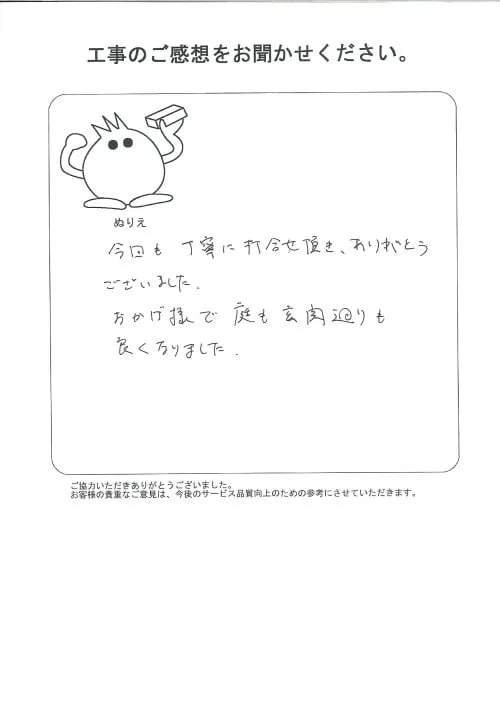 工事のご感想をお聞かせください。
ぬりえ
今回も丁寧に打合せ頂き、ありがとう
ございました.
おかげ様で 庭も玄関廻りも
良くなりました.
ご協力いただきありがとうございました。
お客様の貴重なご意見は、今後のサービス品質向上のための参考にさせていただきます。